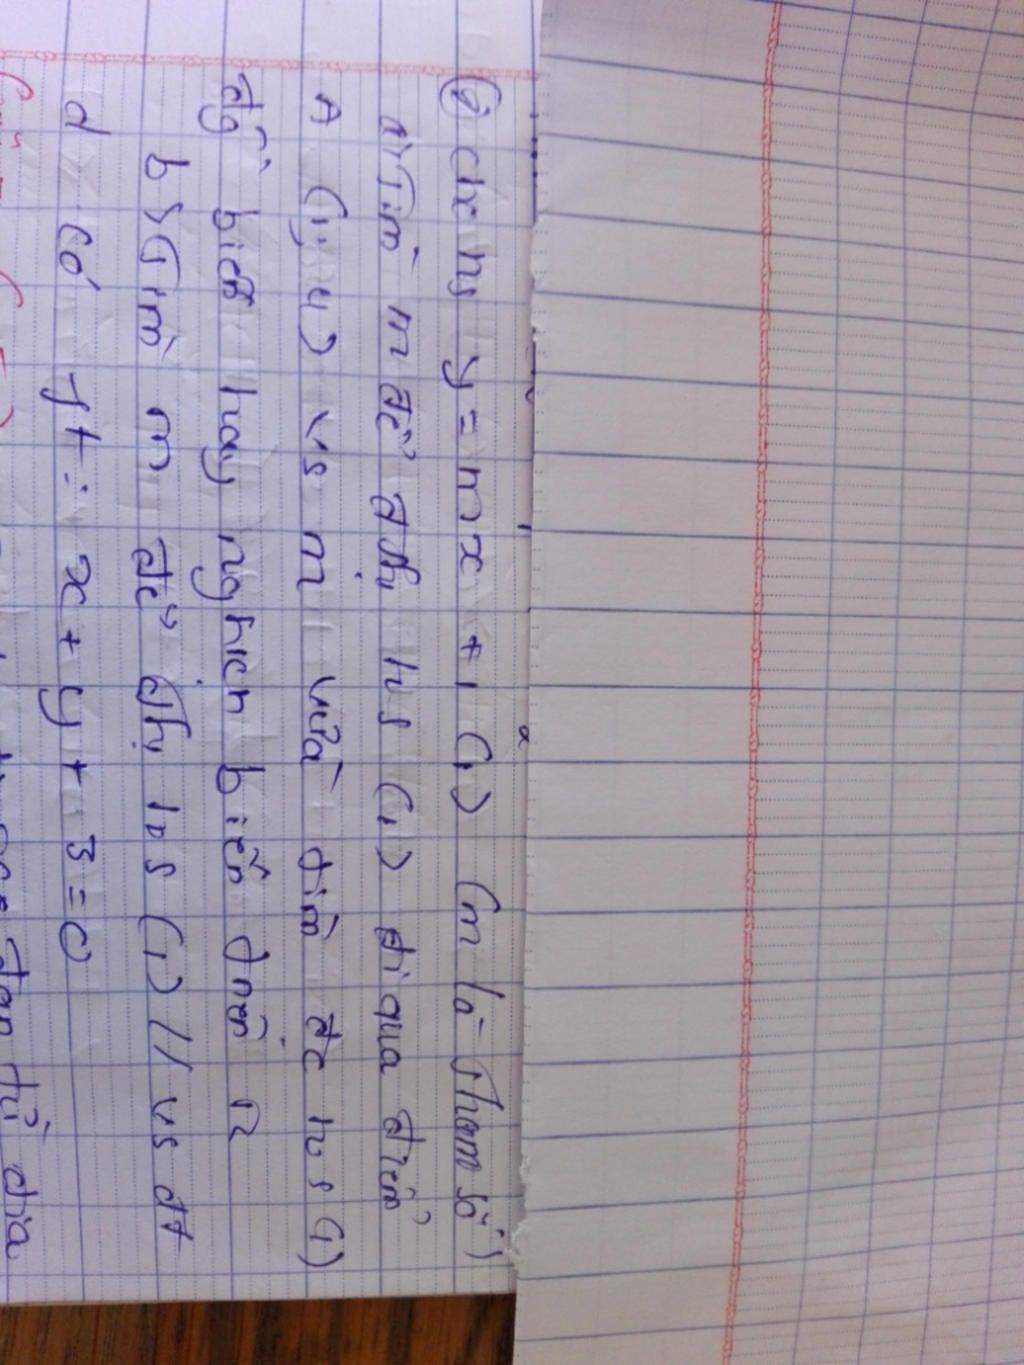 ② cho hs y = mx + 1 (1) (m là tham số)
a) Tìm m để đthị hs (1) đi qua điểm
A (1; 4) vs m vừa tìm đc hs (1)
đồ biến hay nghịch biến trên R
b) Tìm m để đthị hs (1) // vs đt
d có pt: x + y + 3 = 0